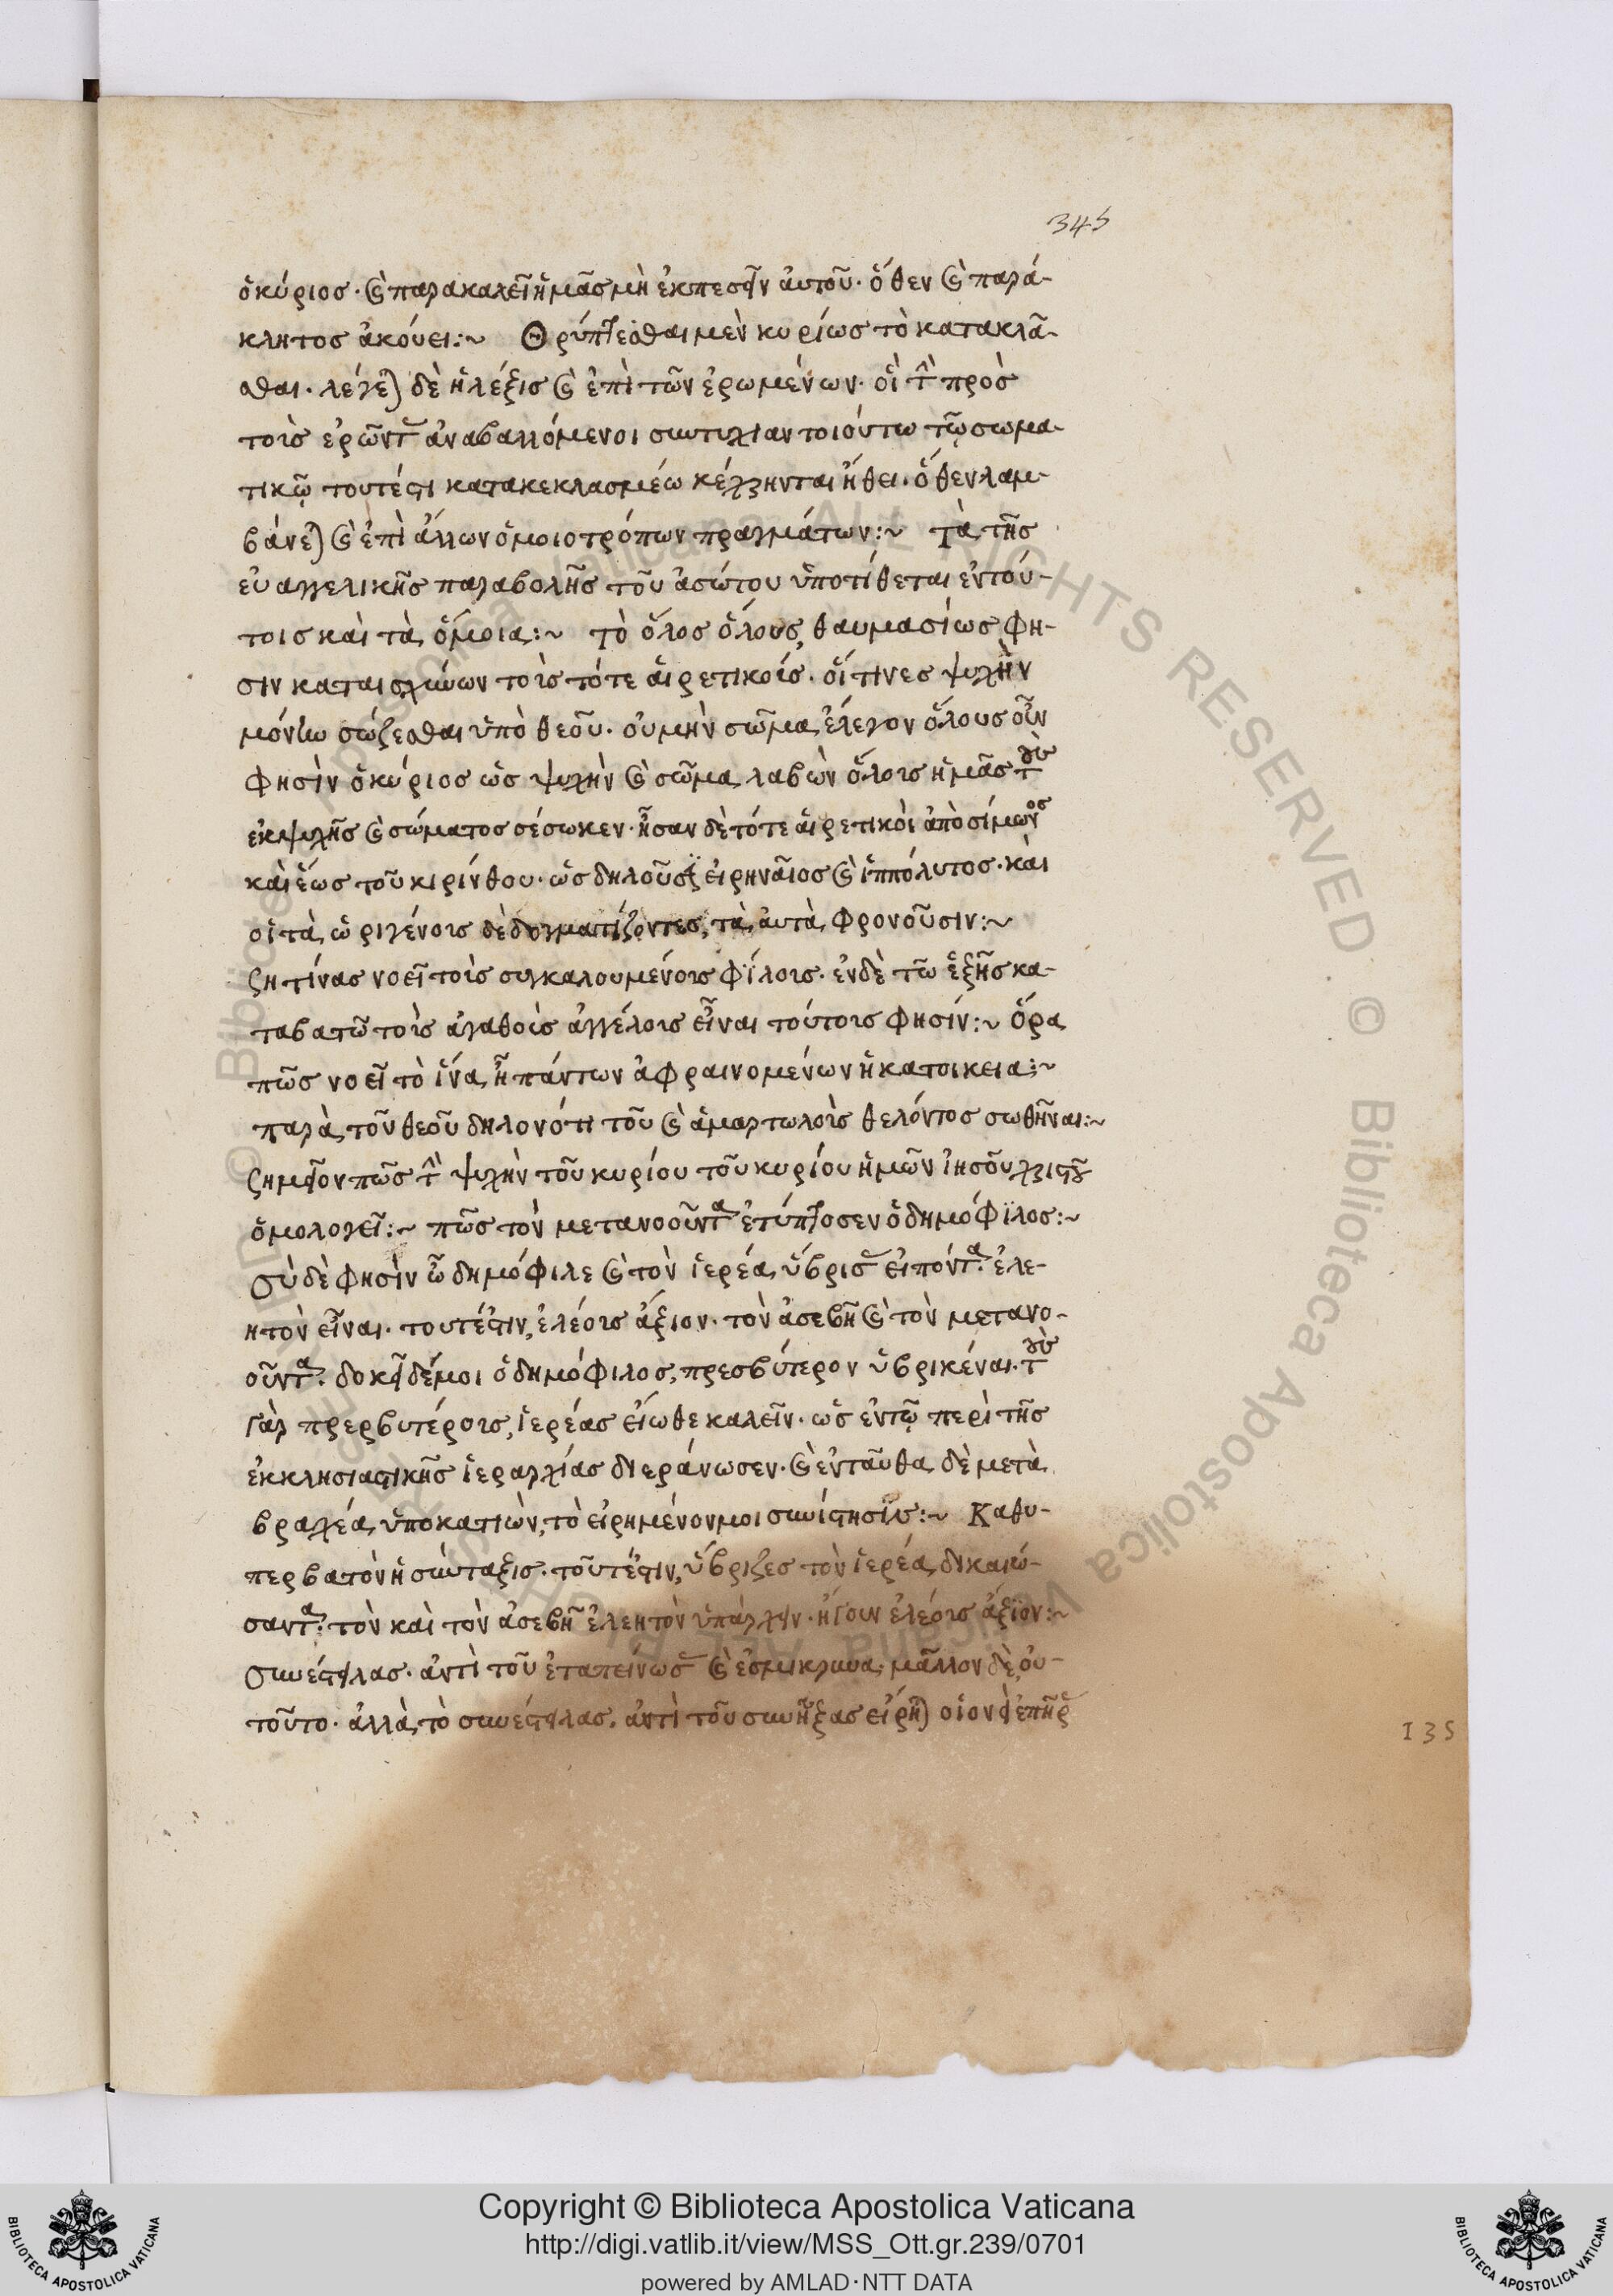 345
ὁ κύριος· καὶ παρακαλεῖ ἡμᾶς μὴ ἐκπεσεῖν αὐτοῦ· ὅθεν καὶ παρά-
κλητος ἀκούει:~ Θρύπτεσθαι μὲν κυρίως τὸ κατακλᾶ-
σθαι· λέγεται δὲ ἡ λέξις καὶ ἐπὶ τῶν ἐρωμένων· οἳ τὴν πρὸς
τοὺς ἐρῶντας ἀναβαλλόμενοι συντυχίαν τοιούτω τῷ σωμα-
τικῷ τουτέστι κατακεκλασμένω κέχρηνται ἤθει· ὅθεν λαμ-
βάνεται καὶ ἐπὶ ἄλλων ὁμοιοτρόπων πραγμάτων:~ τὰ τῆς
εὐαγγελικῆς παραβολῆς τοῦ ἀσώτου ὑποτίθεται ἐν τού-
τοις καὶ τὰ ὅμοια:~ τὸ ὅλος ὅλους, θαυμασίως φη-
σιν καταισχύνων τοὺς τότε αἱρετικούς· οἵτινες ψυχὴν
μόνην σώζεσθαι ὑπὸ θεοῦ· οὐ μὴν σῶμα ἔλεγον ὅλους οὖν
φησὶν ὁ κύριος ὡς ψυχὴν καὶ σῶμα λαβὼν ὅλους ἡμᾶς τοὺς
ἐκ ψυχῆς καὶ σώματος σέσωκεν· ἦσαν δὲ τότε αἱρετικοὶ ἀπὸ σίμωνος
καὶ ἕως τοῦ κιρίνθου· ὡς δηλοῦσι εἰρηναῖος καὶ ἱππόλυτος· καὶ
οἱ τὰ ὠριγένους δὲ δογματίζοντες, τὰ αὐτὰ φρονοῦσιν:~
ζη τίνας νοεῖ τοὺς συγκαλουμένους φίλους· ἐν δὲ τῶ ἑξῆς κα-
ταβατῶ τοὺς ἀγαθοὺς ἀγγέλους εἶναι τούτους φησίν:~ ὅρα
πῶς νοεῖ τὸ ἵνα ἦ πάντων ἀφραινομένων ἡ κατοικεια:~
παρὰ τοῦ θεοῦ δηλονότι τοῦ καὶ ἁμαρτωλοὺς θελόντος σωθῆναι:~
ζημεῖον πῶς τὴν ψυχὴν τοῦ κυρίου τοῦ κυρίου ἡμῶν ἰησοῦ χριστοῦ
ὁμολογεῖ:~ πῶς τὸν μετανοοῦντα ἐτύπτοσεν ὁ δημόφιλος:~
Σὺ δὲ φησὶν ὦ δημόφιλε καὶ τὸν ἱερέα ὕβρισας εἰπόντα ἐλε-
ητὸν εἶναι· τουτέστιν, ἐλέους ἄξιον· τὸν ἀσεβῆ καὶ τὸν μετανο-
οῦντα. δοκεῖ δέ μοι ὁ δημόφιλος, πρεσβύτερον ὑβρικέναι· τοὺς
γὰρ πρερβυτέρους, ἱερέας εἴωθε καλεῖν· ὡς ἐν τῷ περὶ τῆς
ἐκκλησιαστικῆς ἱεραρχίας διεράνωσεν· καὶ ἐνταῦθα δὲ μετὰ
βραχέα ὑποκατιὼν, τὸ εἰρημένον μοι συνίστησιν:~ Καθυ-
περβατὸν ἡ σύνταξις· τοῦτέστιν, ὕβριζες τὸν ἱερέα δικαιώ-
σαντα τὸν καὶ τὸν ἀσεβῆ ἐλεητὸν ὑπάρχειν· ἤγουν ἐλέους ἄξιον:~
Συνέστειλας· ἀντὶ τοῦ ἐταπείνωσας καὶ ἐσμίκρυνας μᾶλλον δὲ οὐ
τοῦτο· ἀλλὰ τὸ συνέστειλας. ἀντὶ τοῦ συνῆξας εἴρηται οἱονεὶ ἐπῆρας
135
Copyright © Biblioteca Apostolica Vaticana
http://digi.vatlib.it/view/MSS_Ott.gr.239/0701
powered by AMLAD·NTT DATA
BIBLIOTECA APOSTOLICA VATICANA
BIBLIOTECA APOSTOLICA VATICANA